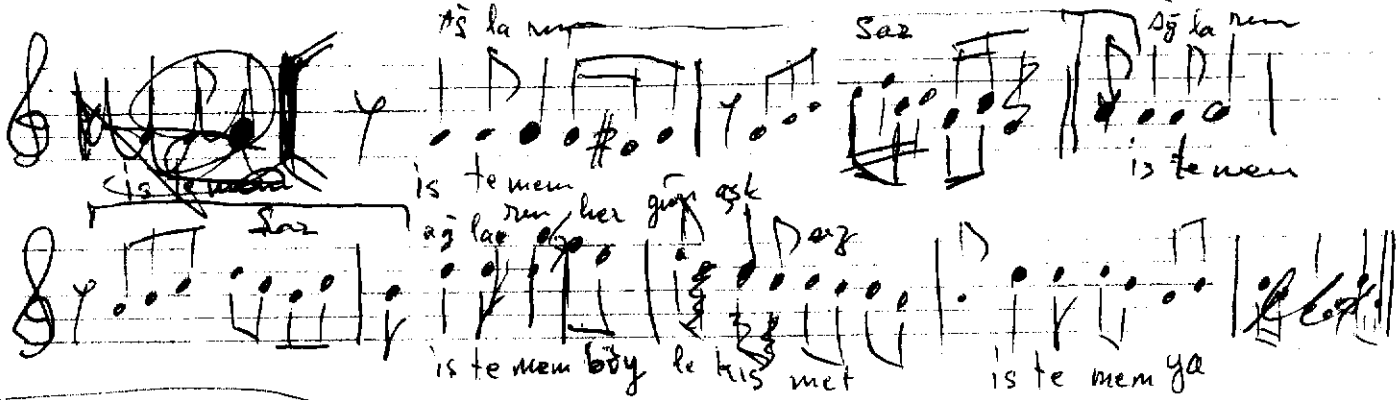 Ağ la rım Saz Ağ la rım
is te mem is te mem is te mem
Saz ağ la rım her gün aşk saz
is te mem böy le kıs met is te mem ya